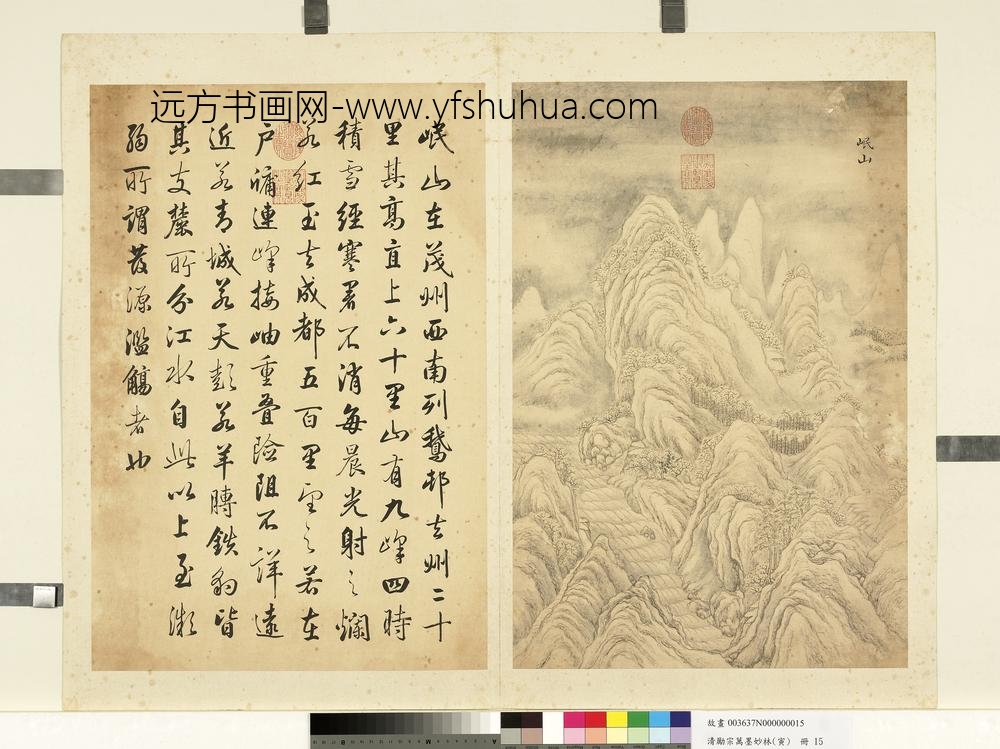 远方书画网-www.yfshuhua.com
岷山
岷山在茂州西南列鵝邨去州二十
里其高直上六十里山有九峰四時
積雪經寒暑不消每晨光射之爛
若紅玉去成都五百里望之若在
戶牖連峰接岫重疊險阻不詳遠
近若青城若天彭若羊膊鉄豹皆
其支麓所分江水自此以上至微
弱所謂發源濫觴者也
故畫 003637N000000015
清勵宗萬墨妙林(寅) 冊 15